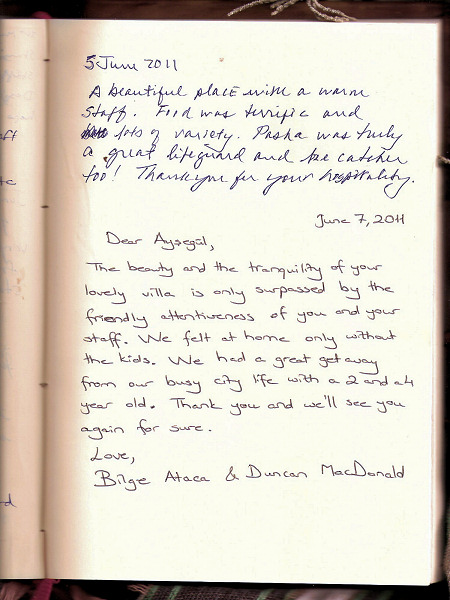 5 June 2011
A beautiful place with a warm
staff. Food was terrific and
lots of variety. Pasha was truly
a great lifeguard and bee catcher
too! Thank you for your hospitality.
June 7, 2011
Dear Aysegül,
The beauty and the tranquility of your
lovely villa is only surpassed by the
friendly attentiveness of you and your
staff. We felt at home only without
the kids. We had a great get away
from our busy city life with a 2 and a 4
year old. Thank you and we'll see you
again for sure.
Love,
Bilge Ataca & Duncan MacDonald